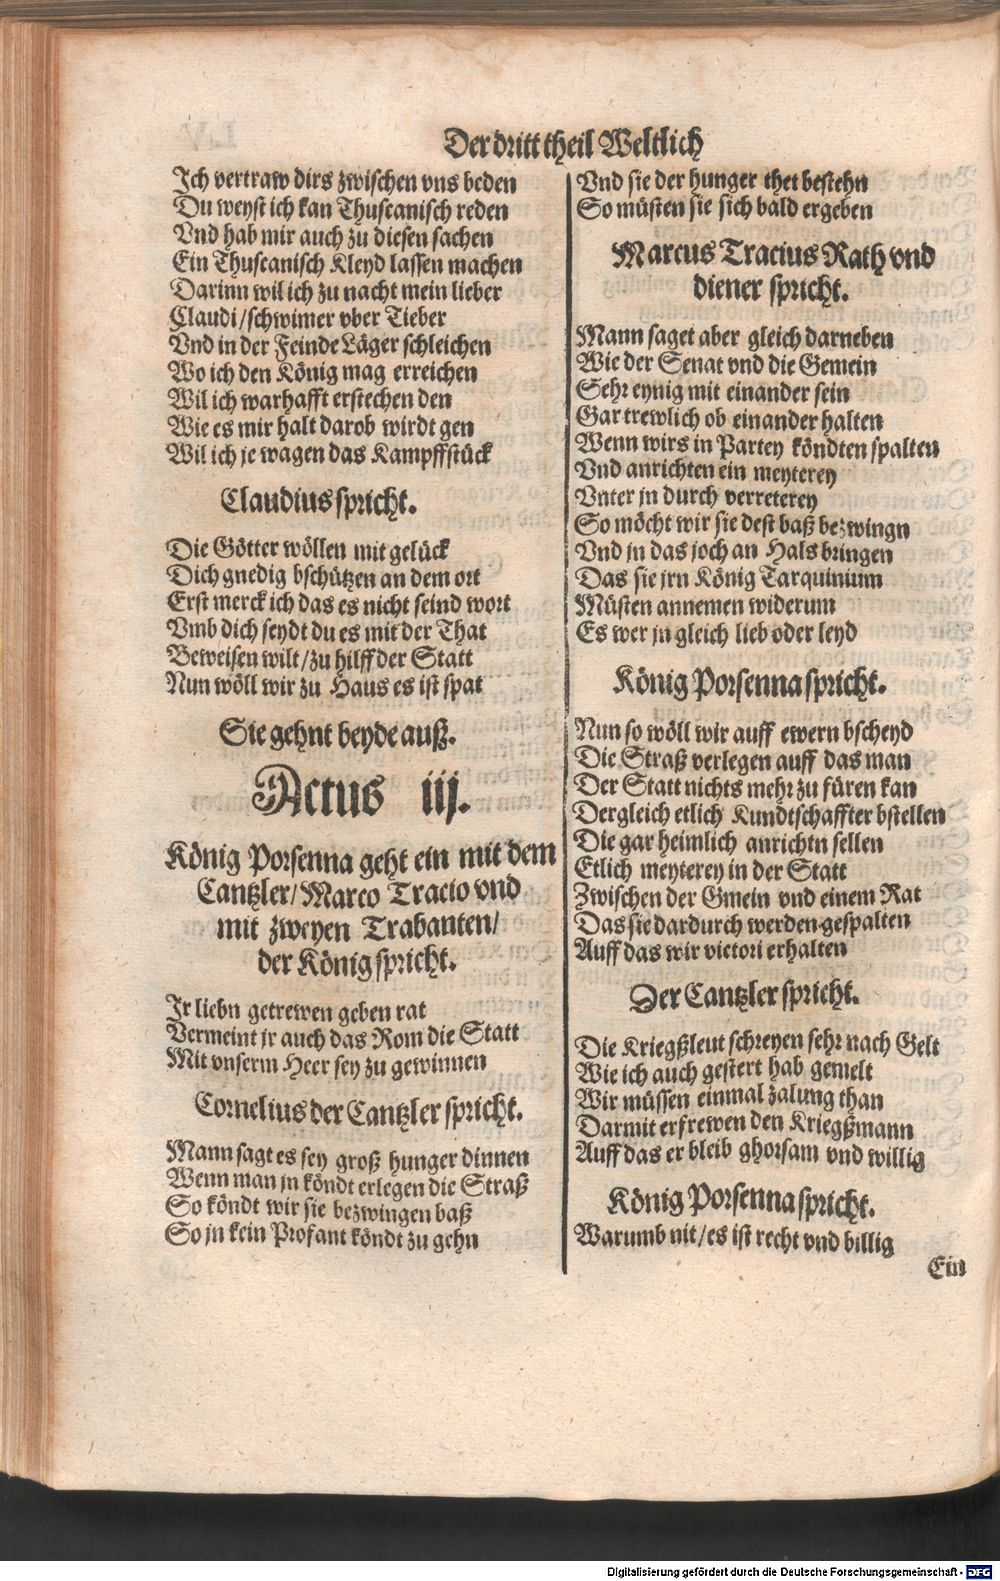 Der dritt theil Weltlich
Ich vertraw dirs zwischen vns beden
Du weyst ich kan Thuscanisch reden
Vnd hab mir auch zu diesen sachen
Ein Thuscanisch Kleyd lassen machen
Darinn wil ich zu nacht mein lieber
Claudi/schwimer vber Tieber
Vnd in der Feinde Läger schleichen
Wo ich den König mag erreichen
Wil ich warhafft erstechen den
Wie es mir halt darob wirdt gen
Wil ich je wagen das Kampffstück
Claudius spricht.
Die Götter wöllen mit gelück
Dich gnedig bschützen an dem ort
Erst merck ich das es nicht seind wort
Vmb dich seydt du es mit der That
Beweisen wilt/zu hilff der Statt
Nun wöll wir zu Haus es ist spat
Sie gehnt beyde auß.
Actus iij.
König Porsenna geht ein mit dem
Cantzler/Marco Tracio vnd
mit zweyen Trabanten/
der König spricht.
Ir liebn getrewen geben rat
Vermeint jr auch das Rom die Statt
Mit vnserm Heer sey zu gewinnen
Cornelius der Cantzler spricht.
Mann sagt es sey groß hunger dinnen
Wenn man jn köndt erlegen die Straß
So köndt wir sie bezwingen baß
So jn kein Profant köndt zu gehn
Vnd sie der hunger thet bestehn
So müsten sie sich bald ergeben
Marcus Tracius Rath vnd
diener spricht.
Mann saget aber gleich darneben
Wie der Senat vnd die Gemein
Sehr eynig mit einander sein
Gar trewlich ob einander halten
Wenn wirs in Partey köndten spalten
Vnd anrichten ein meyterey
Vnter jn durch verreterey
So möcht wir sie dest baß bezwingn
Vnd jn das joch an Hals bringen
Das sie jrn König Tarquinium
Müsten annemen widerum
Es wer jn gleich lieb oder leyd
König Porsenna spricht.
Nun so wöll wir auff ewern bscheyd
Die Straß verlegen auff das man
Der Statt nichts mehr zu füren kan
Dergleich etlich Kundtschaffter bstellen
Die gar heimlich anrichtn sellen
Etlich meyterey in der Statt
Zwischen der Gmein vnd einem Rat
Das sie dardurch werden gespalten
Auff das wir victori erhalten
Der Cantzler spricht.
Die Kriegßleut schreyen sehr nach Gelt
Wie ich auch gestert hab gemelt
Wir müssen einmal zalung than
Darmit erfrewen den Kriegßmann
Auff das er bleib ghorsam vnd willig
König Porsenna spricht.
Warumb nit/es ist recht vnd billig
Ein
Digitalisierung gefördert durch die Deutsche Forschungsgemeinschaft - DFG